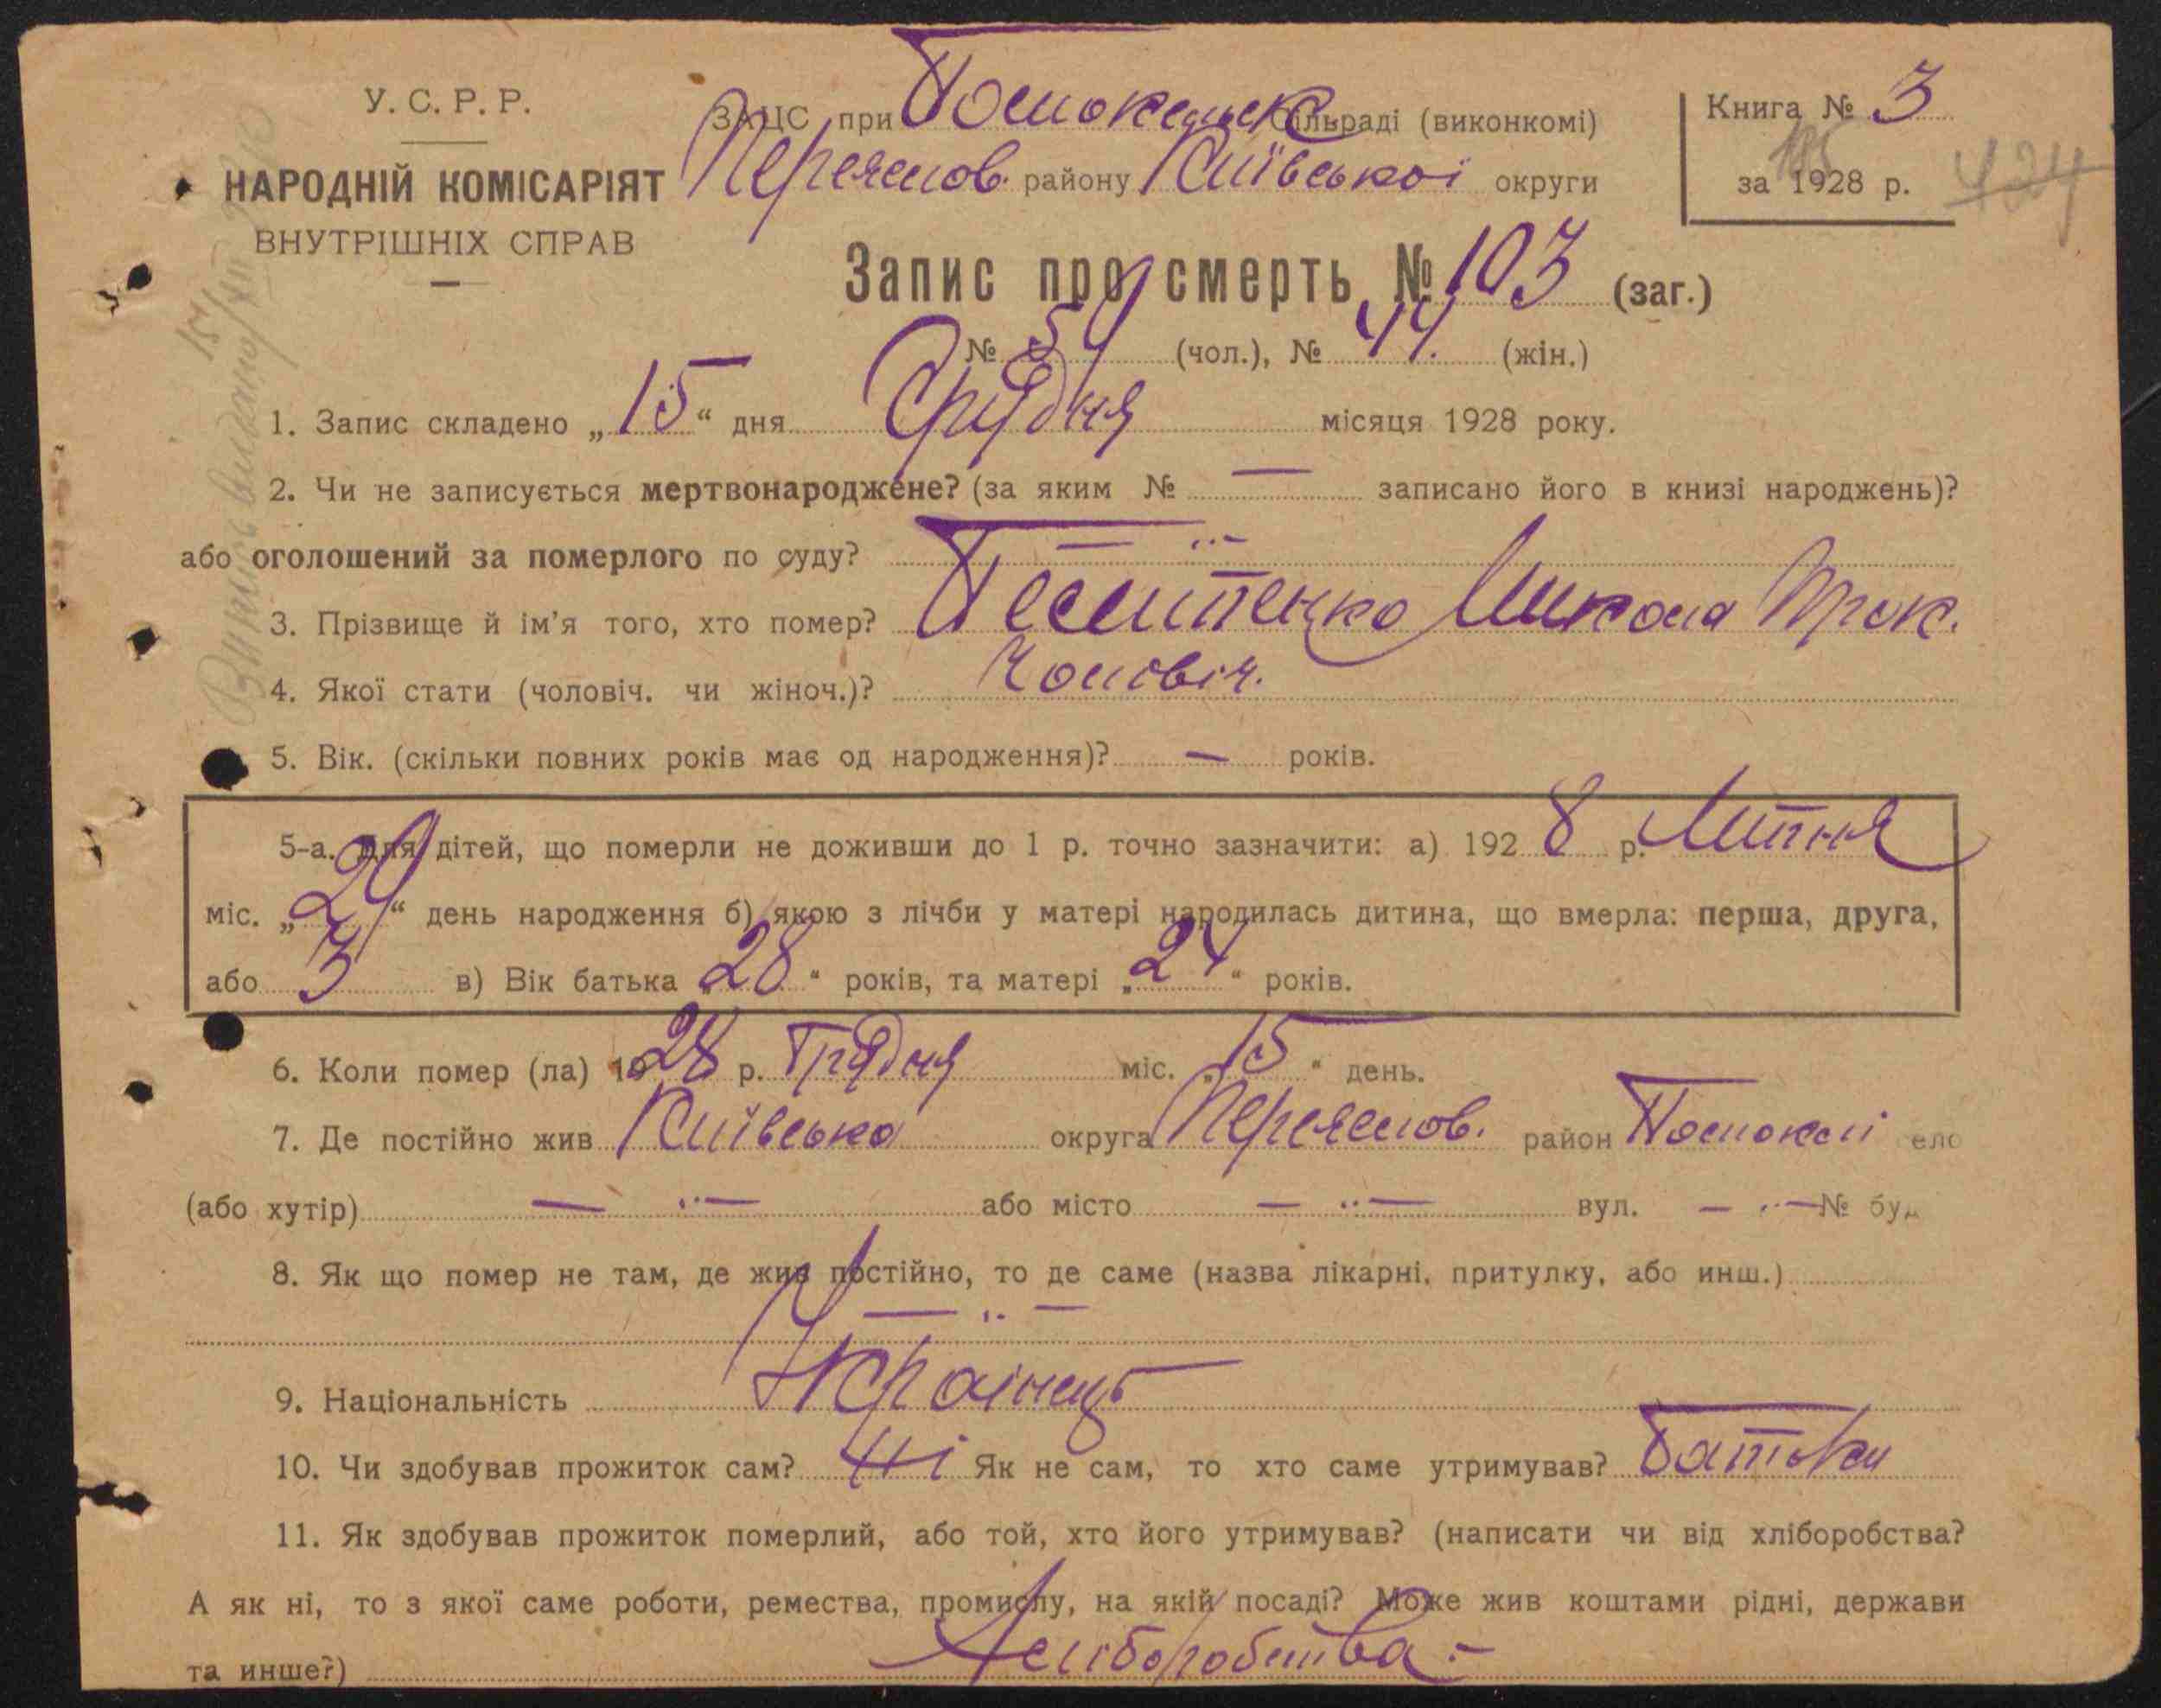 У. С. Р. Р.
НАРОДНІЙ КОМІСАРІЯТ
ВНУТРІШНІХ СПРАВ
ЗАЦС при Помоклєнськ Сільраді (виконкомі)
Переяслов. району Київської округи
Книга № 3
за 1928 р.
424
Запис про смерть № 103 (заг.)
№ 59 (чол.), № 44. (жін.)
1. Запис складено „15“ дня Грудня місяця 1928 року.
2. Чи не записується мертвонароджене? (за яким № — записано його в книзі народжень)?
або оголошений за померлого по суду? — ..–
3. Прізвище й ім'я того, хто помер? Микола Прок.
4. Якої стати (чоловіч. чи жіноч.)? Чоловіч.
5. Вік. (скільки повних років має од народження)? — років.
5-а. Для дітей, що померли не доживши до 1 р. точно зазначити: а) 1928 р. Липня
міс. „29“ день народження б) якою з лічби у матері народилась дитина, що вмерла: перша, друга,
або 3 в) Вік батька „28“ років, та матері „24“ років.
6. Коли помер (ла) 1928 р. Грудня міс. „15“ день.
7. Де постійно жив Київська округа Переяслов. район Помоклі ело
(або хутір) — ..— або місто — ..— вул. — ..— № буд
8. Як що помер не там, де жив постійно, то де саме (назва лікарні, притулку, або инш.)
— .. —
9. Національність Українець
10. Чи здобував прожиток сам? Ні Як не сам, то хто саме утримував? Батьки
11. Як здобував прожиток померлий, або той, хто його утримував? (написати чи від хліборобства?
А як ні, то з якої саме роботи, ремества, промислу, на якій посаді? Може жив коштами рідні, держави
та инше?) Хліборобства.–